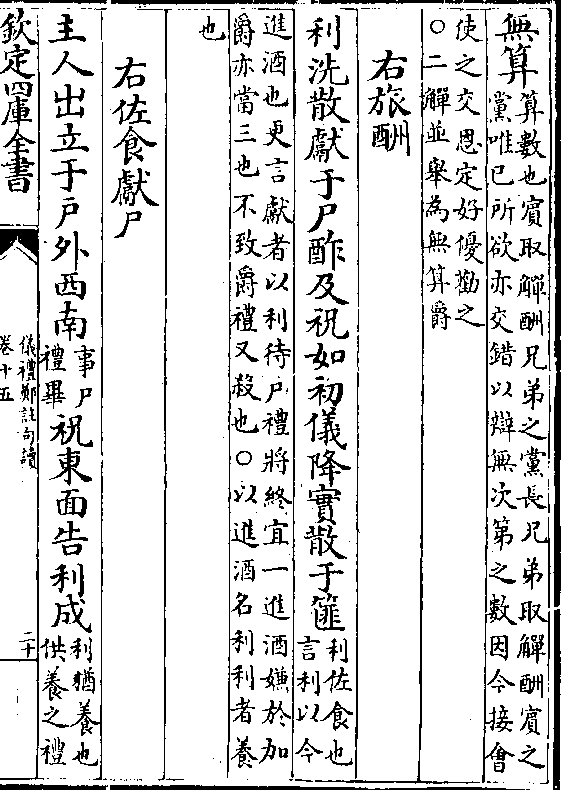 無算算數也賓取觶酬兄弟之黨長兄弟取觶酬賓之
黨唯已所欲亦交錯以辯無次第之數因今接會
使之交恩定好優勸之
○二觶並舉為無算爵
右旅酬
利洗散獻于尸酢及祝如初儀降實散于篚利佐食也
言利以今
進酒也更言獻者以利待尸禮將終宜一進酒嫌於加
爵亦當三也不致爵禮又殺也○以進酒名利利者養
也
右佐食獻尸
主人出立于戶外西南事尸
禮畢祝東面告利成利猶養也
供養之禮
欽定四庫全書
儀禮鄭註句讀
卷十五
二十